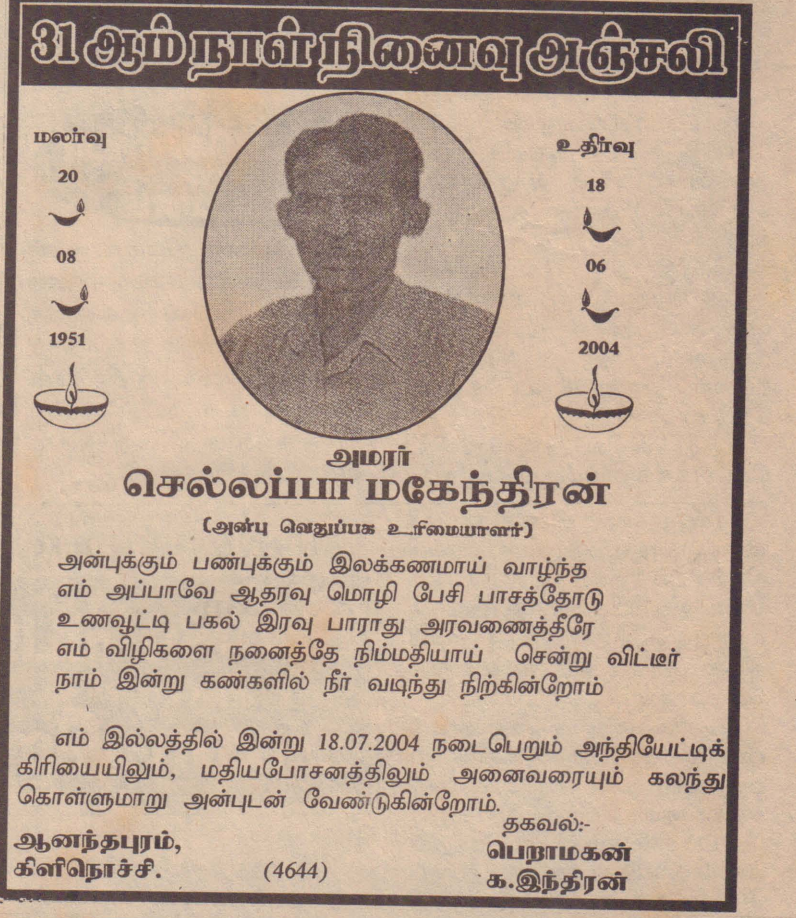 31 ஆம் நாள் நினைவு அஞ்சலி
மலர்வு
20
08
1951
உதிர்வு
18
06
2004
அமரர்
செல்லப்பா மகேந்திரன்
(அன்பு வெதுப்பக உரிமையாளர்)
அன்புக்கும் பண்புக்கும் இலக்கணமாய் வாழ்ந்த
எம் அப்பாவே ஆதரவு மொழி பேசி பாசத்தோடு
உணவூட்டி பகல் இரவு பாராது அரவணைத்தீரே
எம் விழிகளை நனைத்தே நிம்மதியாய் சென்று விட்டீர்
நாம் இன்று கண்களில் நீர் வடிந்து நிற்கின்றோம்
எம் இல்லத்தில் இன்று 18.07.2004 நடைபெறும் அந்தியேட்டிக்
கிரியையிலும், மதியபோசனத்திலும் அனைவரையும் கலந்து
கொள்ளுமாறு அன்புடன் வேண்டுகின்றோம்.
தகவல்:-
ஆனந்தபுரம், பெறாமகன்
கிளிநொச்சி. (4644) க.இந்திரன்